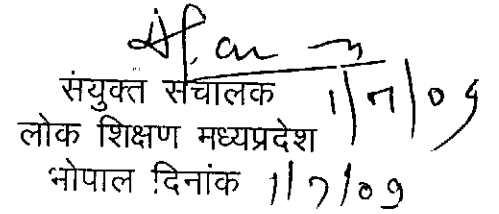 संयुक्त संचालक 1/7/09
लोक शिक्षण मध्यप्रदेश
भोपाल दिनांक 1/7/09